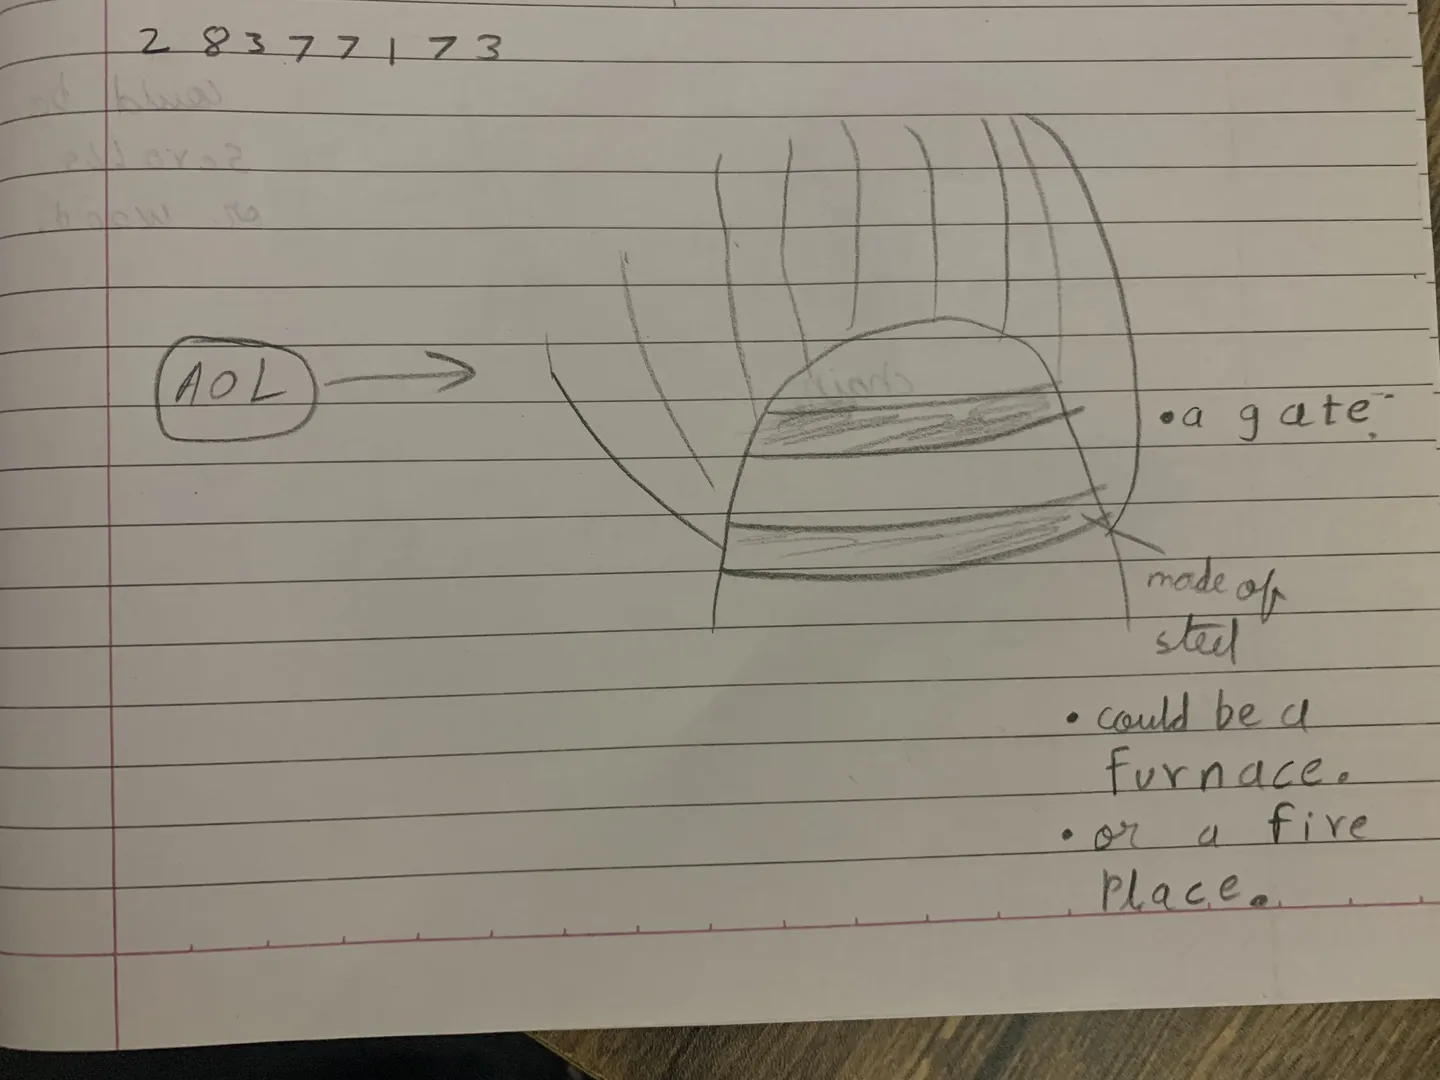 2 8 3 7 7 1 7 3
AOL
• a gate.
made of
steel
• could be a
furnace.
• or a fire
place.